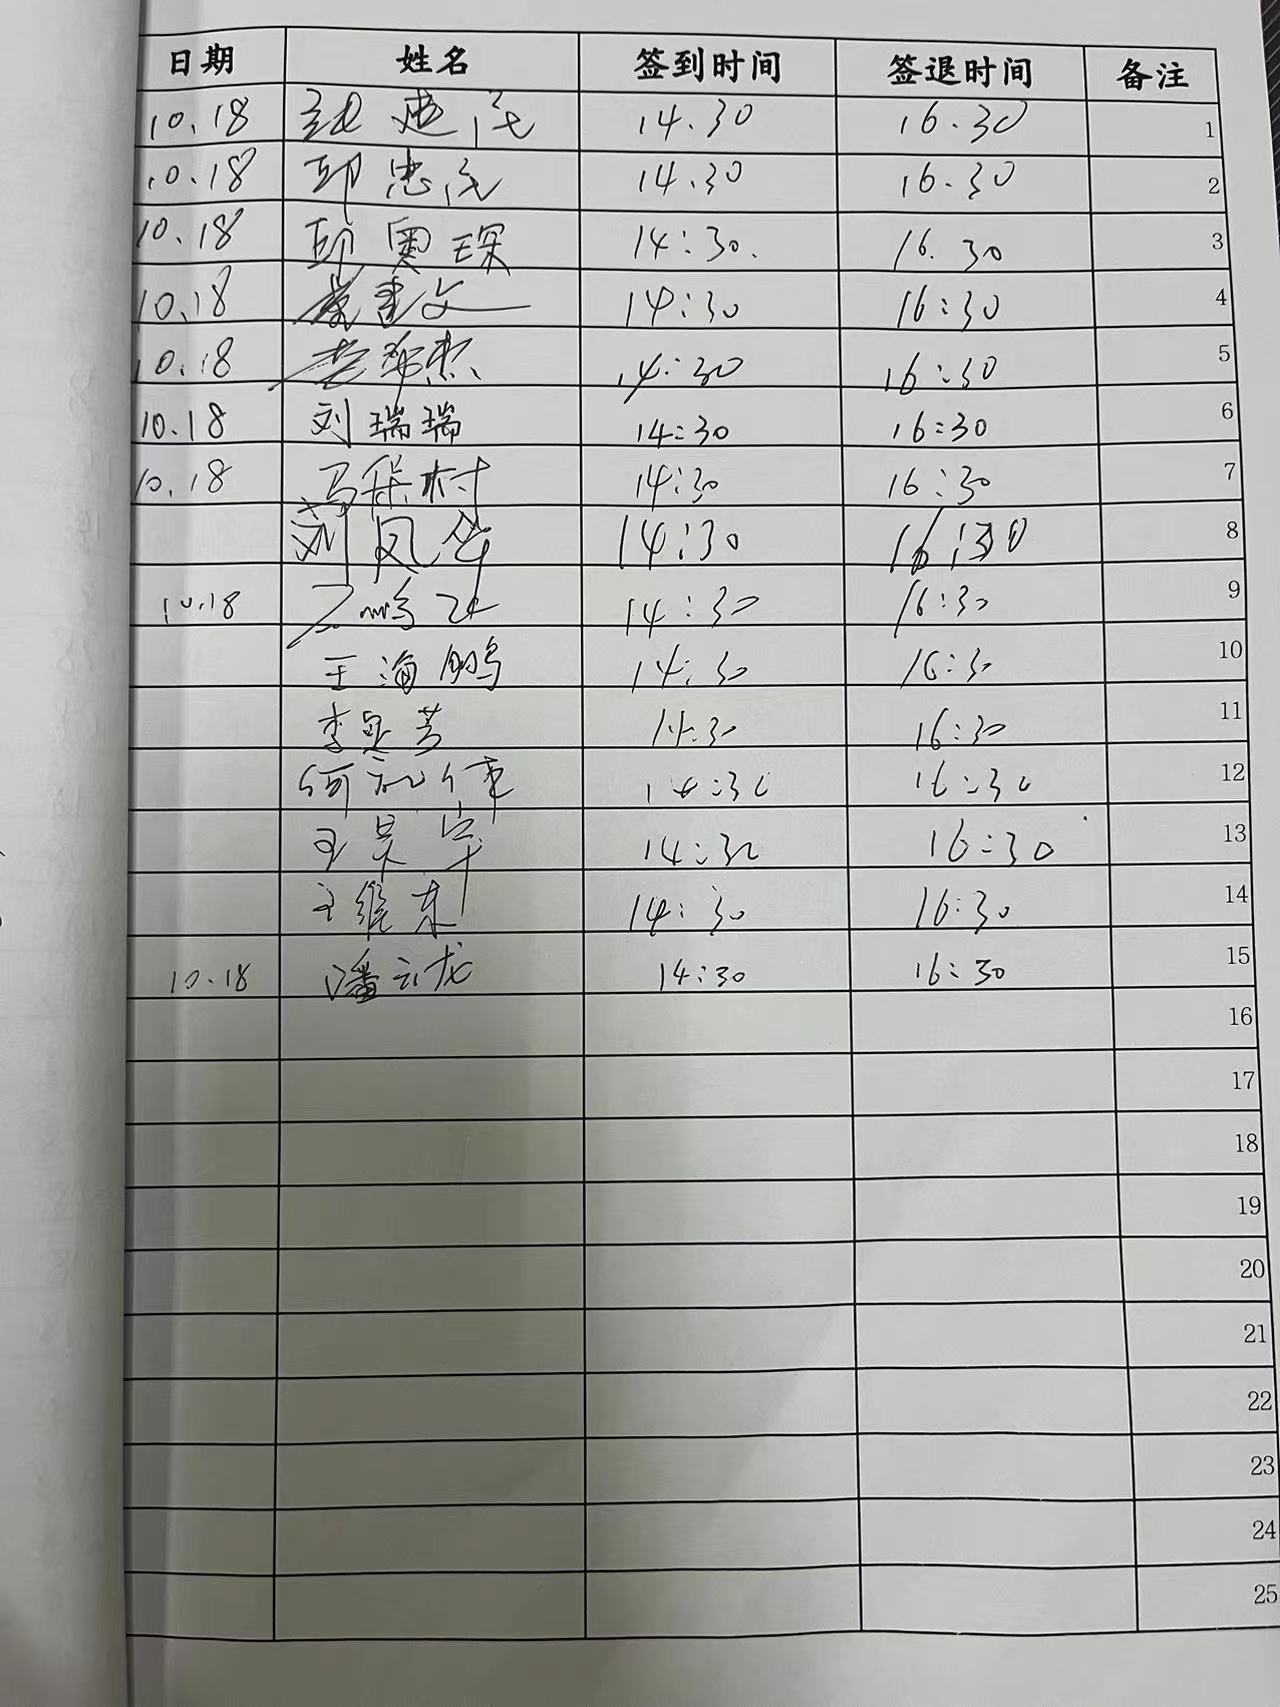 日期 姓名 签到时间 签退时间 备注
10.18 14.30 16.30 1
10.18 邱忠民 14.30 16.30 2
10.18 邱奥琛 14:30. 16.30 3
10.18 14:30 16:30 4
10.18 14:30 16:30 5
10.18 刘瑞瑞 14:30 16:30 6
10.18 马 村 14:30 16:30 7
刘凤华 14:30 16:30 8
10.18 14:30 16:30 9
王海鹏 14:30 16:30 10
李 芳 14:30 16:30 11
何 伟 14:30 16:30 12
王昊宇 14:30 16:30 13
王维东 14:30 16:30 14
10.18 潘云龙 14:30 16:30 15
16
17
18
19
20
21
22
23
24
25